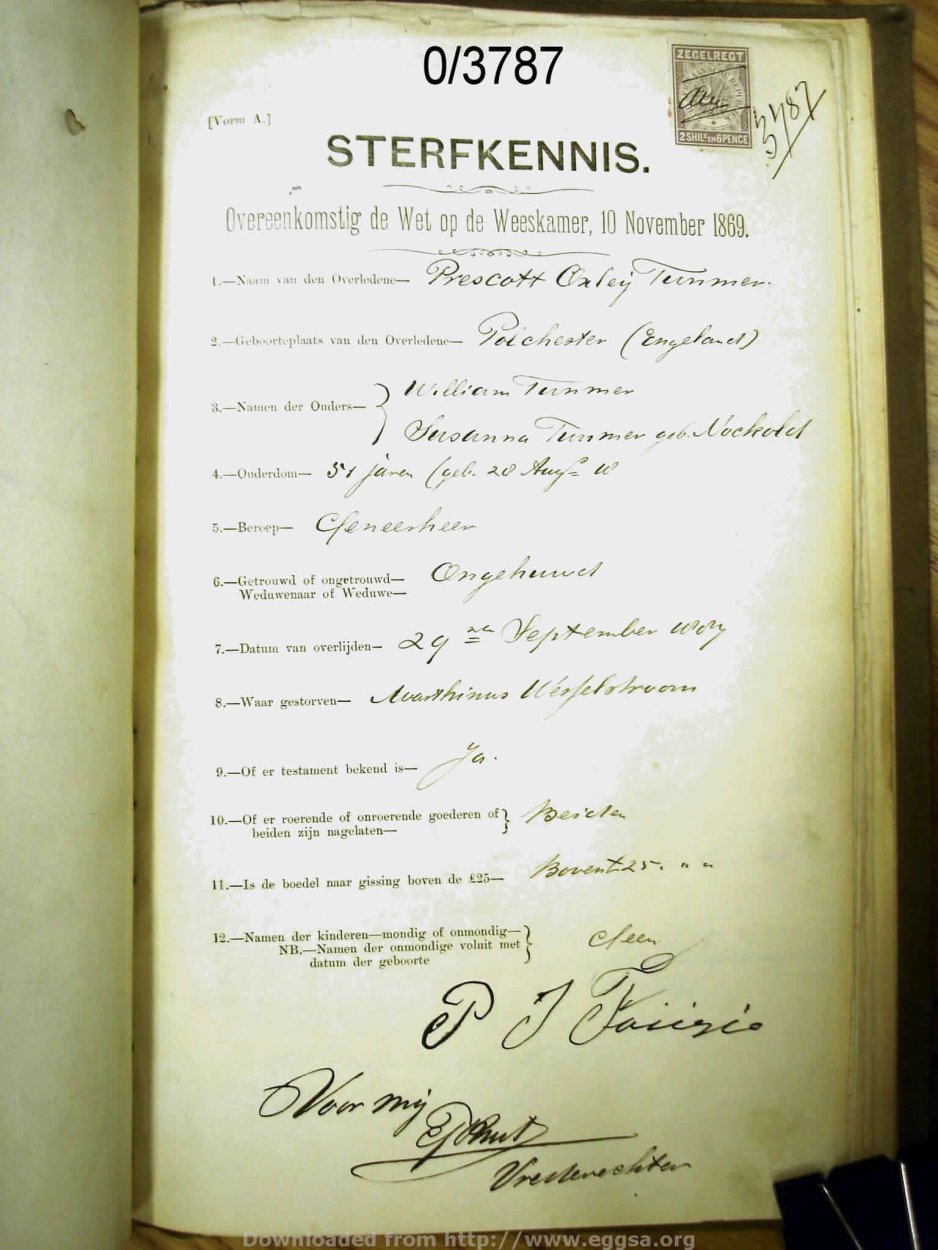 0/3787
ZEGELREGT
2 SHILS EN 6 PENCE
3787
[Vorm A.]
STERFKENNIS.
Overeenkomstig de Wet op de Weeskamer, 10 November 1869.
1.—Naam van den Overledene— Prescott Oxley Tunmer.
2.—Geboorteplaats van den Overledene— Polchester (Engeland)
3.—Namen der Ouders— William Tunmer
Susanna Tunmer geb. Nockold
4.—Ouderdom— 51 jaren (geb. 28 Augs 18
5.—Beroep— Geneesheer
6.—Getrouwd of ongetrouwd— Ongehuwd
Weduwenaar of Weduwe—
7.—Datum van overlijden— 29 September
8.—Waar gestorven— Marthinus Wesselstroom
9.—Of er testament bekend is— Ja.
10.—Of er roerende of onroerende goederen of Beiden
beiden zijn nagelaten—
11.—Is de boedel naar gissing boven de £25— Boven £25. " "
12.—Namen der kinderen—mondig of onmondig— Geen
NB.—Namen der onmondige voluit met
datum der geboorte
P J
Voor mij
Vrederechter
Downloaded from http://www.eggsa.org